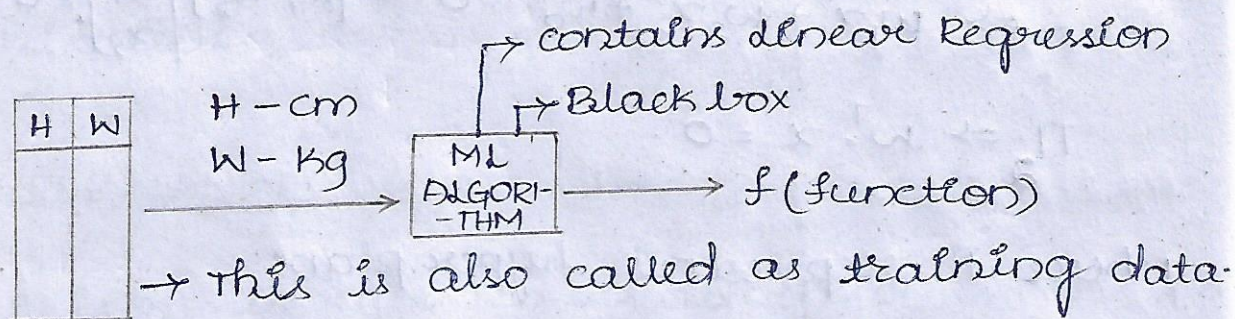 → contains Linear Regression
→ Black box
H W
H - cm
W - Kg
ML
ALGORI-
-THM
→ f (function)
→ This is also called as training data.